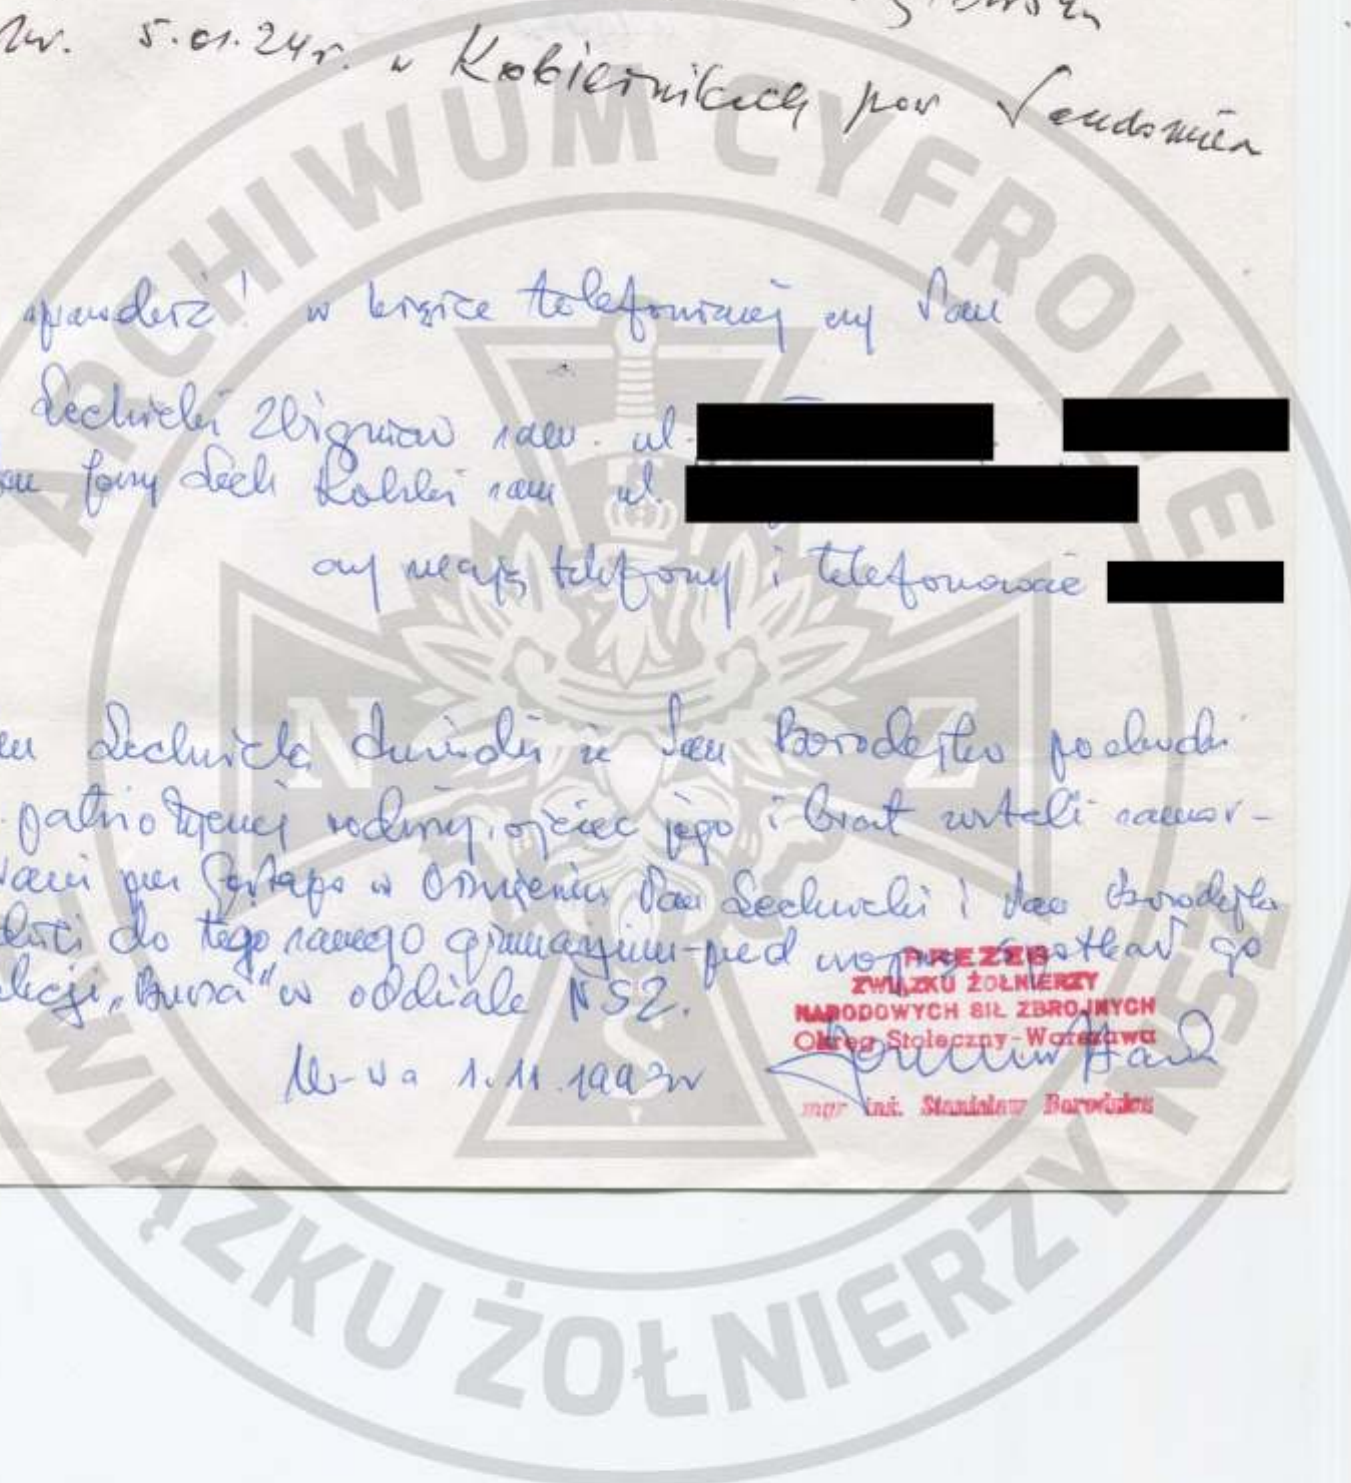 ur. 5.01.24r. w Kobiernikach pow Sandomierz
sprawdzić! w książce telefonicznej czy Pan
Lechicki Zbigniew zam. ul.
Jerzy Lech Rolski zam ul.
czy mają telefony i telefonować
Lechicki twierdzi że Pan Borodejko pochodzi
patriotycznej rodziny, ojciec jego i brat zostali zamor-
przez Gestapo w Oświęcimiu Pan Lechicki i Pan Borodejko
do tego samego gimnazjum-przed wojną spotkał go
akcji „Burza" w oddziale NSZ.
W-wa 1.11.1993r
PREZES
ZWIĄZKU ŻOŁNIERZY
NARODOWYCH SIŁ ZBROJNYCH
Okręg Stołeczny-Warszawa
mgr inż. Stanisław
ARCHIWUM CYFROWE
ZWIĄZKU ŻOŁNIERZY NSZ
N Z
S